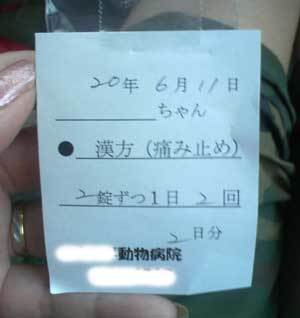 20年 6月 11日
ちゃん
● 漢方（痛み止め）
2錠ずつ1日 2回
2日分
動物病院